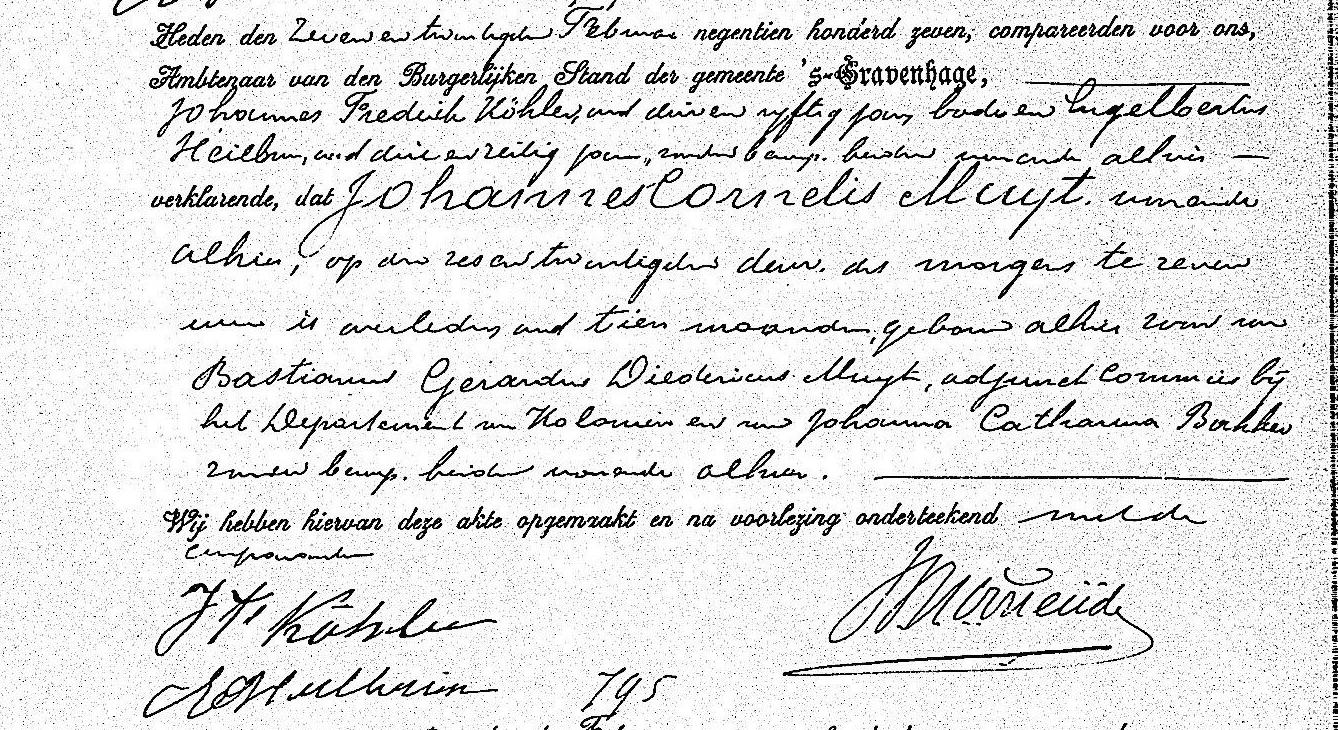 Heden den Zevenentwintigsten Februari negentien honderd zeven, compareerden voor ons,
Ambtenaar van den Burgerlijken Stand der gemeente 's-Gravenhage,
Johannes Fredrik Köhler, oud drieenvyftig jaar, bode en Engelbertus
Heilbron, oud drieenzestig jaar, zonder beroep. beiden wonende alhier —
verklarende, dat Johannes Cornelis Muyt. wonende
alhier, op den zesentwintigsten dezer. des morgens te zeven
uren is overleden, oud tien maanden, geboren alhier zoon van
Bastiaan Gerardus Diedericus Muyt, adjunct Commies bij
het Departement van Kolonien en van Johanna Catharina Bakker
zonder beroep. beiden wonende alhier.
Wij hebben hiervan deze akte opgemaakt en na voorlezing onderteekend met de
comparanten
J F Köhler
E Heilbron
795